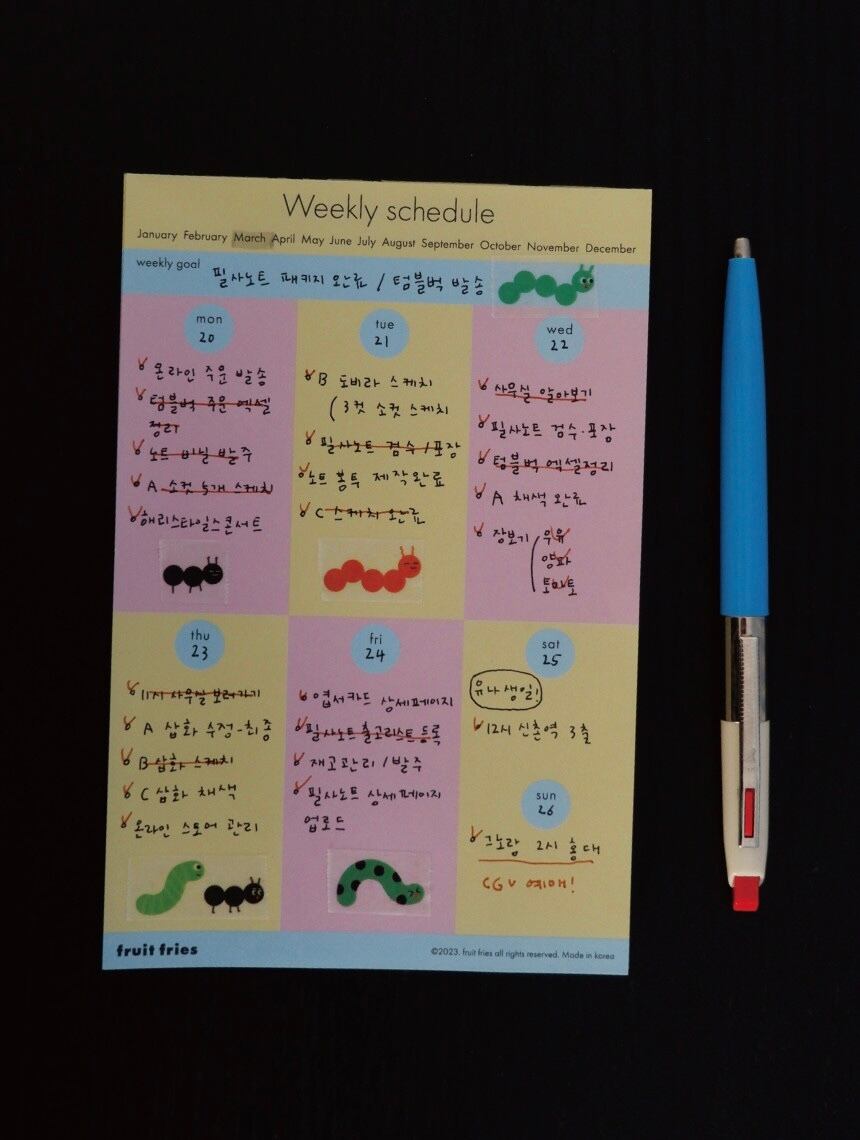 Weekly schedule
January February March April May June July August September October November December
weekly goal
필사노트 패키지 완료 / 텀블벅 발송
mon
20
온라인 주문 발송
텀블벅 주문 엑셀
정리
노트 비닐 발주
A 소컷 5개 스케치
해리스타일스콘서트
tue
21
B 도비라 스케치
(3컷 소컷 스케치
필사노트 검수 / 포장
노트 봉투 제작완료
C 스케치 완료
wed
22
사무실 알아보기
필사노트 검수·포장
텀블벅 엑셀정리
A 채색 완료
장보기 ( 우유
양파
토마토
thu
23
11시 사무실 보러가기
A 삽화 수정-최종
B 삽화 스케치
C 삽화 채색
온라인 스토어 관리
fri
24
엽서카드 상세페이지
필사노트 출고리스트 등록
재고관리 / 발주
필사노트 상세페이지
업로드
sat
25
유나 생일!
12시 신촌역 3출
sun
26
2시 홍대
CGV 예매!
fruit fries
©2023. fruit fries all rights reserved. Made in korea